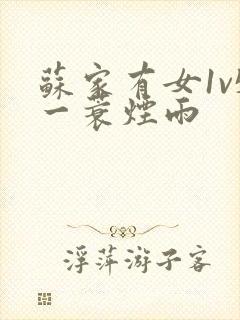 蘇家有女1v
一蓑煙雨
浮萍游子客